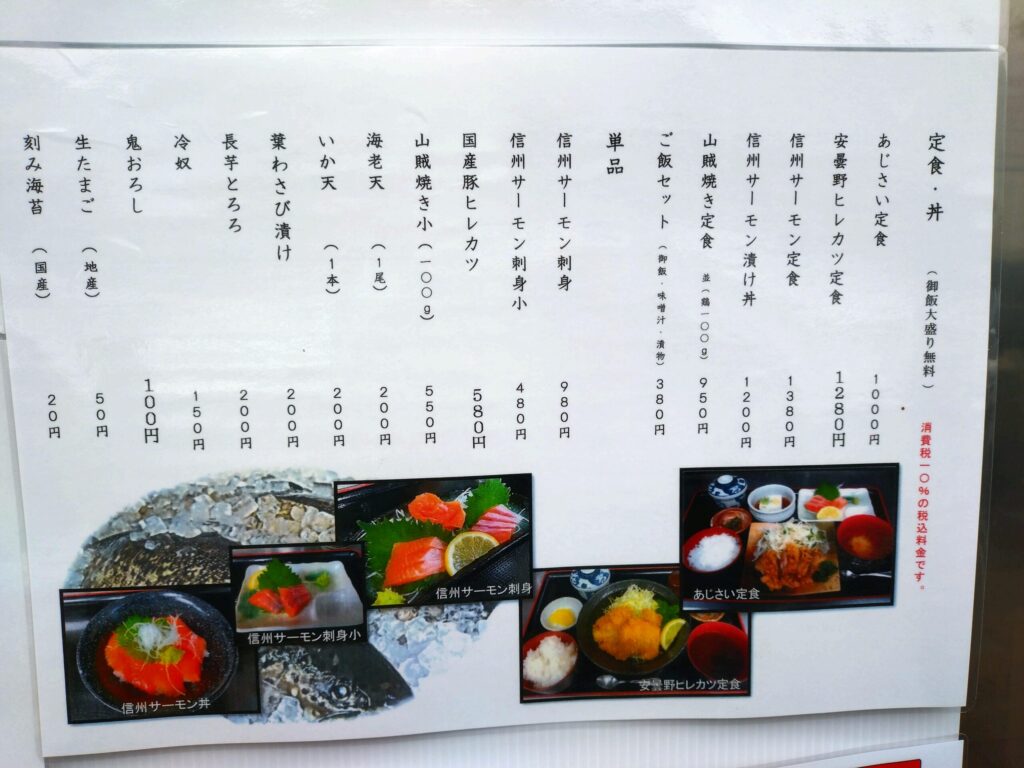 定食・丼 (御飯大盛り無料)
消費税一〇%の税込料金です。
あじさい定食 1000円
安曇野ヒレカツ定食 1280円
信州サーモン定食 1380円
信州サーモン漬け丼 1200円
山賊焼き定食 並(鶏一〇〇g) 950円
ご飯セット(御飯・味噌汁・漬物) 380円
単品
信州サーモン刺身 980円
信州サーモン刺身小 480円
国産豚ヒレカツ 580円
山賊焼き小(一〇〇g) 550円
海老天 (1尾) 200円
いか天 (1本) 200円
葉わさび漬け 200円
長芋とろろ 200円
冷奴 150円
鬼おろし 100円
生たまご (地産) 50円
刻み海苔 (国産) 20円
あじさい定食
安曇野ヒレカツ定食
信州サーモン刺身
信州サーモン刺身小
信州サーモン丼